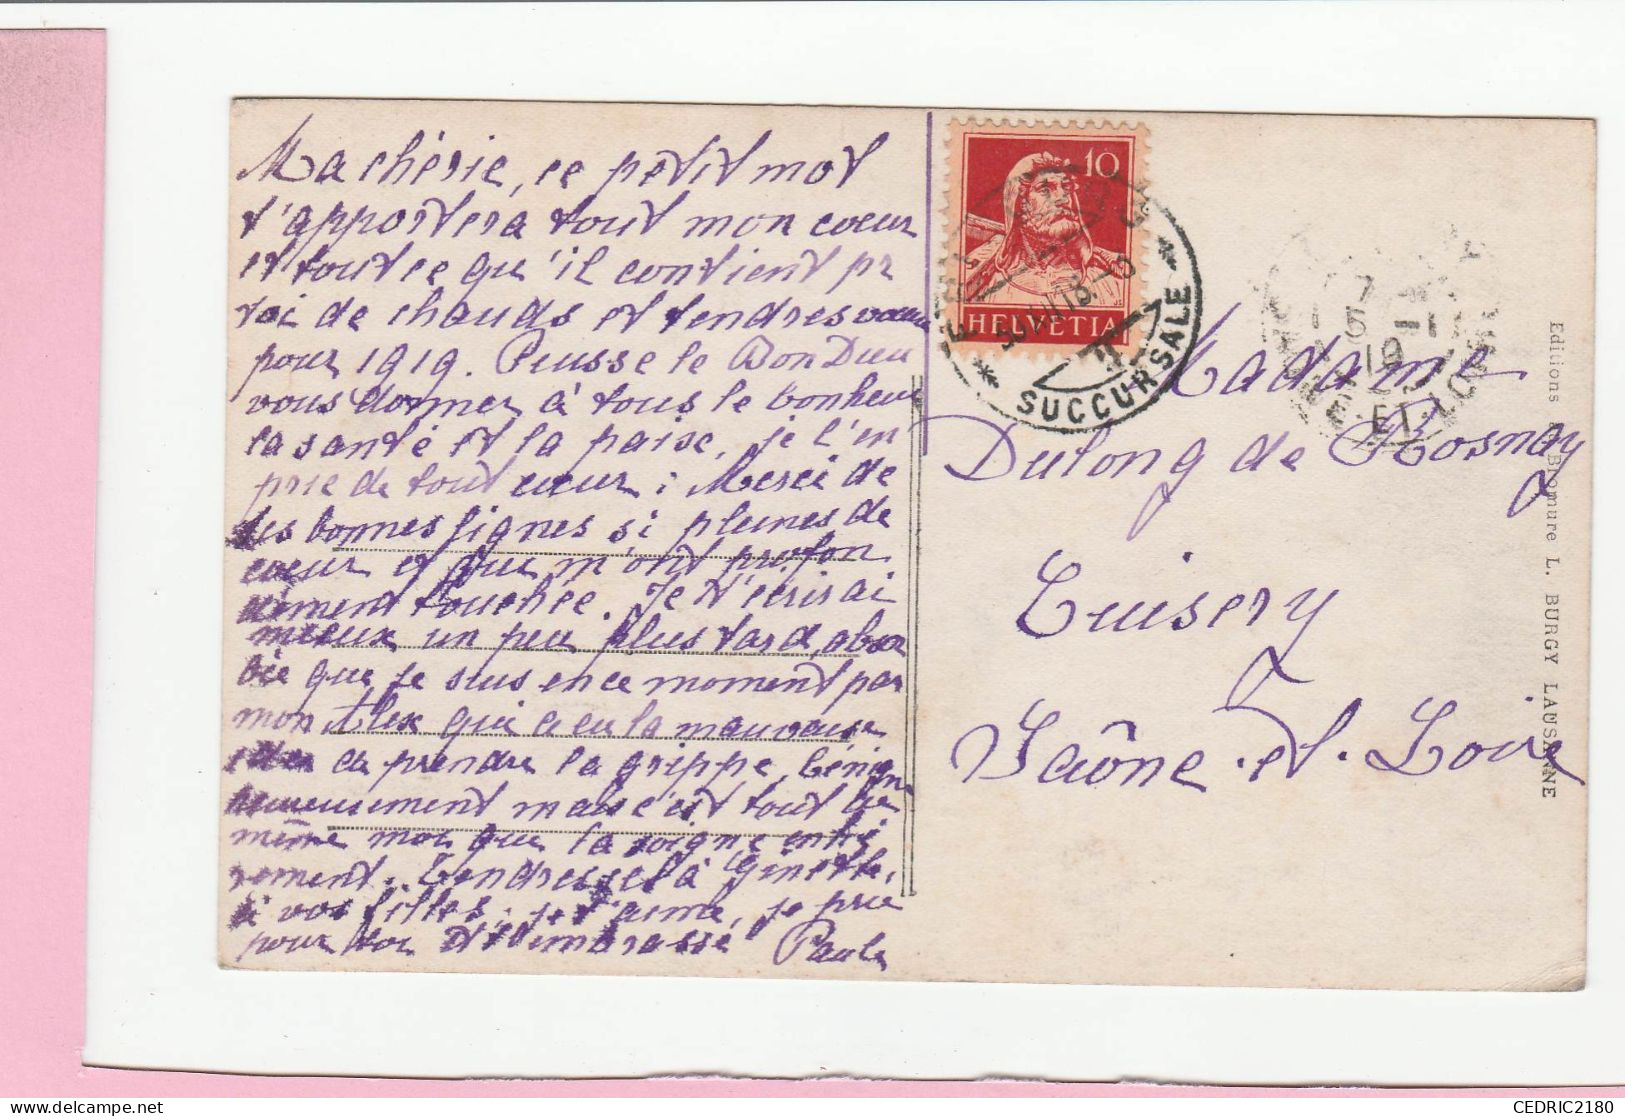 Ma chérie, ce petit mot
t'apportera tout mon cœur
et tout ce qu'il contient pr
toi de chauds et tendres vœux
pour 1919. Puisse le Bon Dieu
vous donner à tous le bonheur
la santé et la paise, je l'en
prie de tout cœur ; Merci de
tes bonnes lignes si pleines de
cœur et que m'ont profon
dément touchée. Je t'écrirai
mieux un peu plus tard, absor
bée que je suis en ce moment par
mon Alex qui a eu la mauvaise
idée de prendre la grippe, bénign
ement mais c'est tout de
même moi que la soigne entiè
rement. Tendresses à Ginette,
à vos filles, je t'aime, je prie
pour toi et t'embrasse Paule
HELVETIA
10
SUCCURSALE
Madame
Dulong de Rosnay
Cuisery
Saône-et-Loire
7
15 -1
19
ET-LOIRE
Editions Bromure L. BURGY LAUSANNE
CEDRIC2180